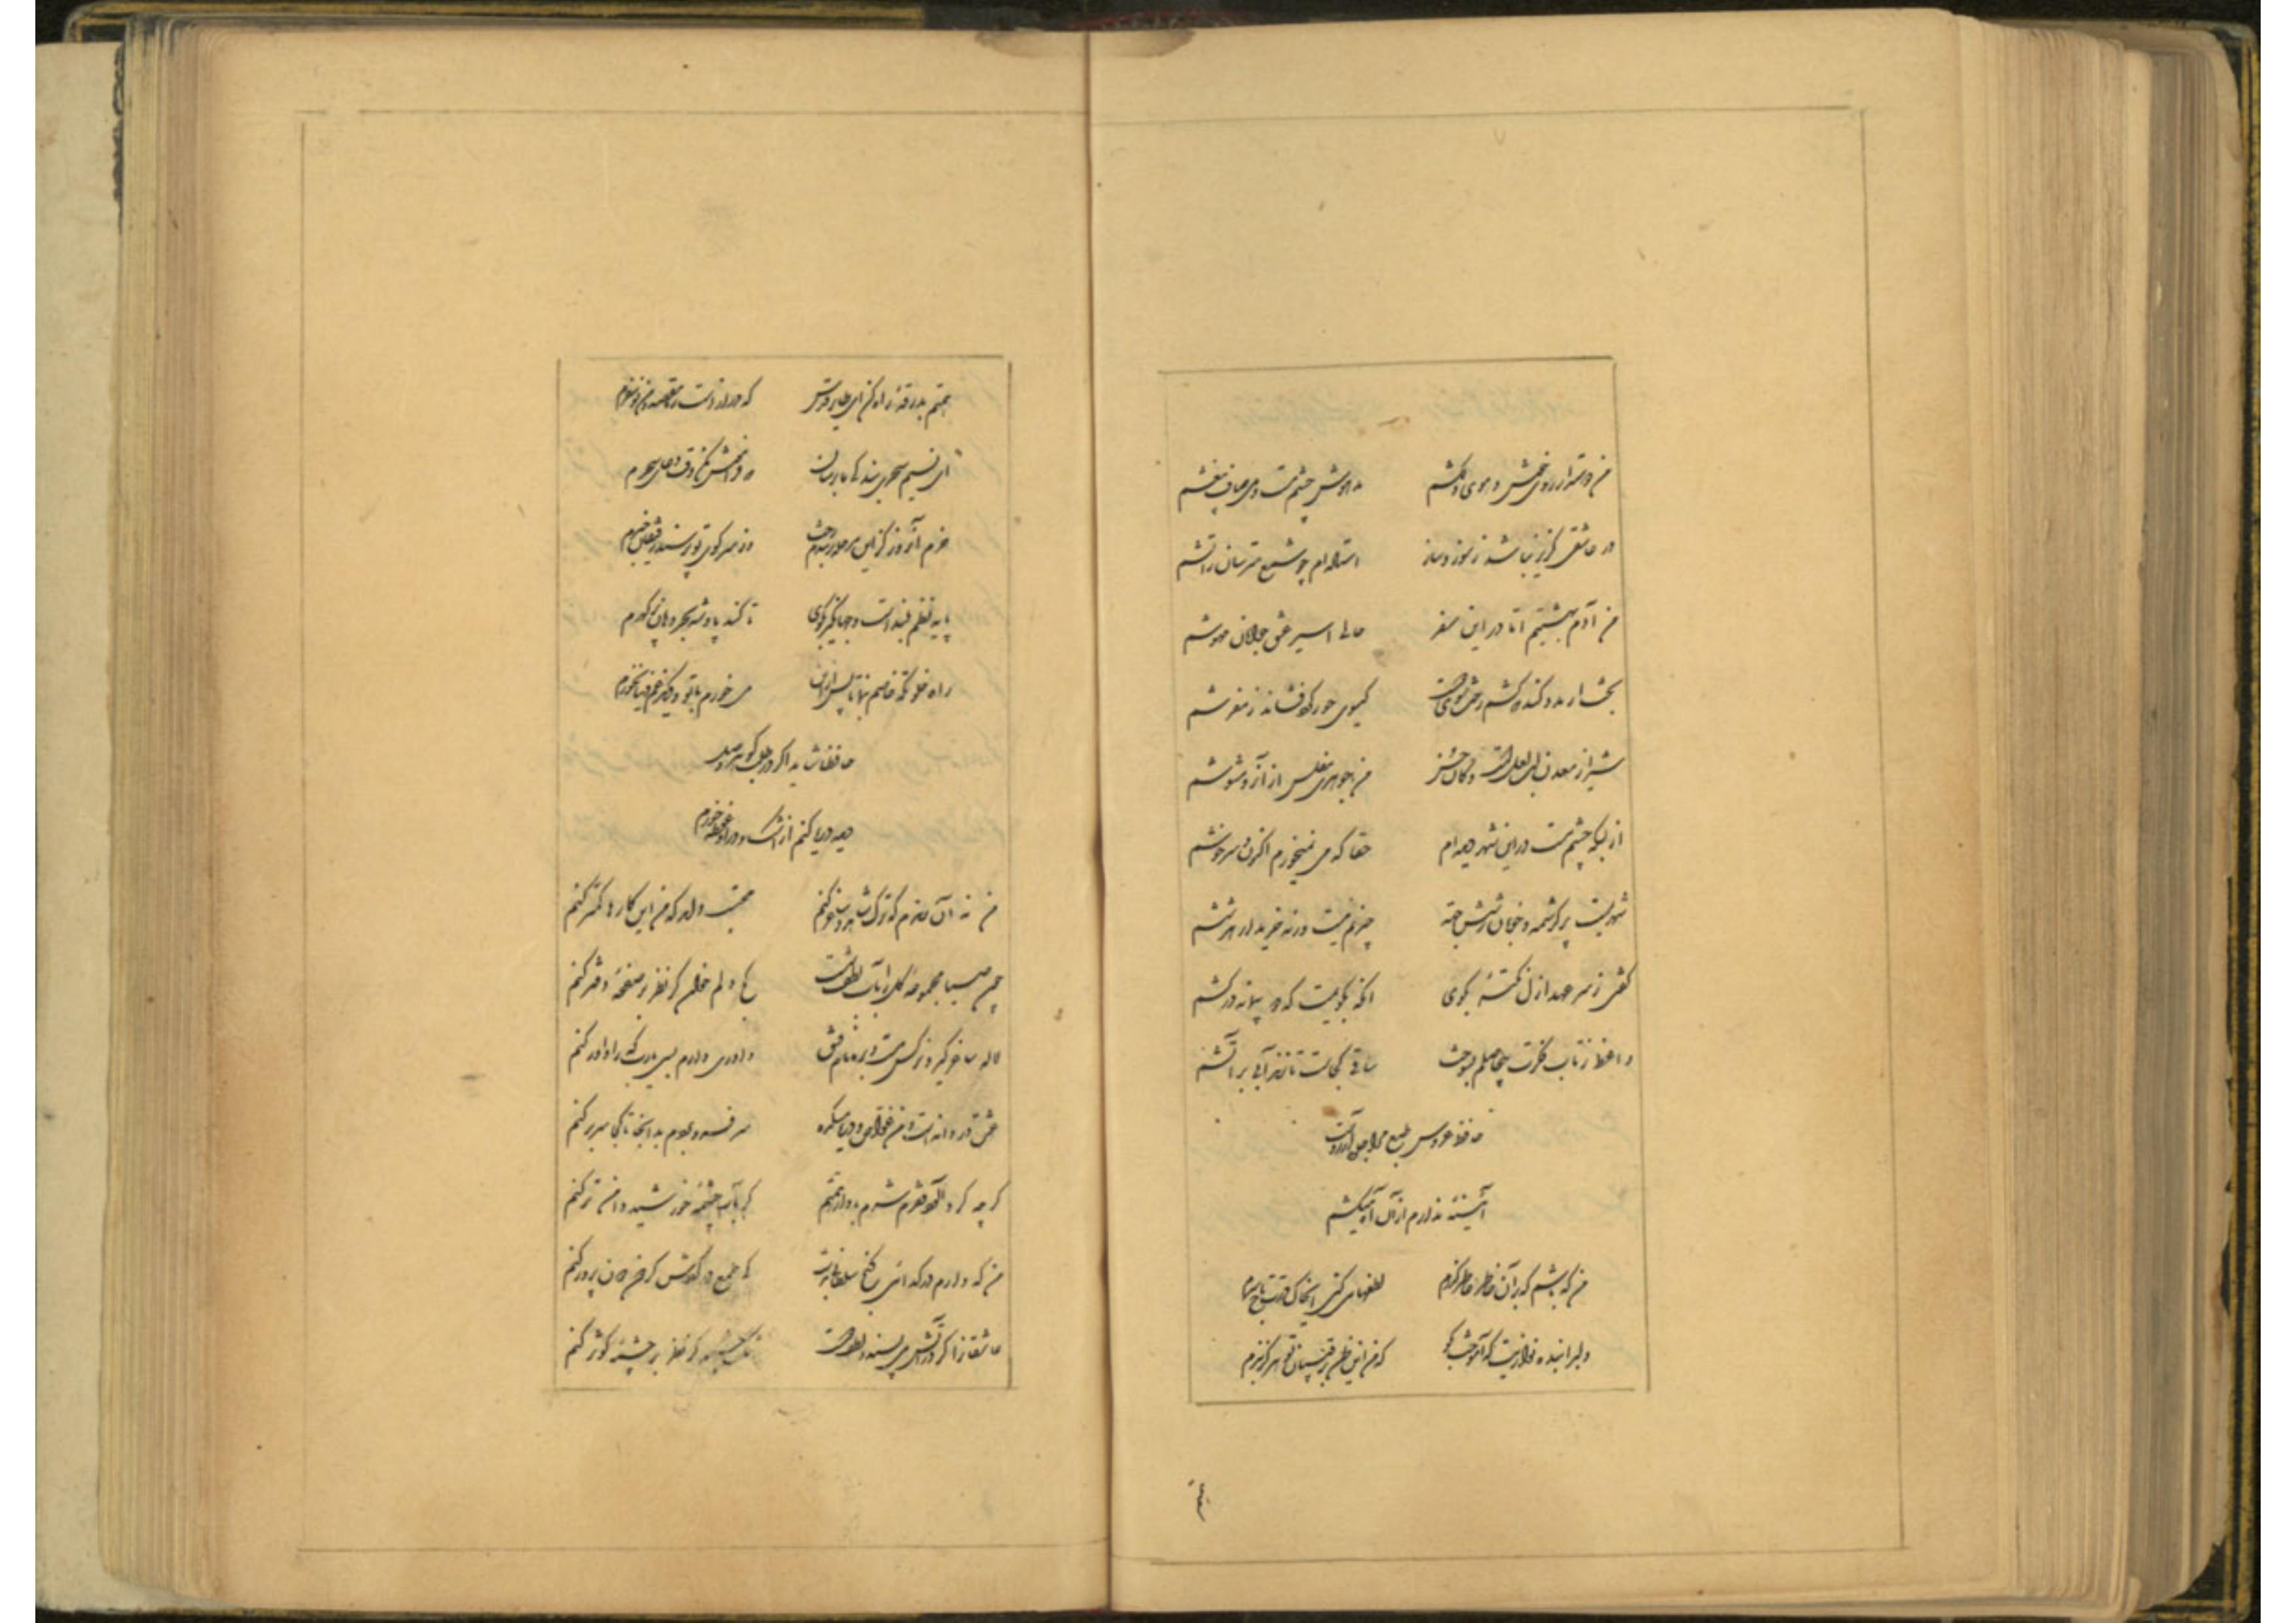 من دوستدار روی خوش و موی دلکشم    مدهوش چشم مست و می صاف بیغشم
در عاشقی گزیر نباشد ز سوز و ساز    استاده‌ام چو شمع مترسان ز آتشم
من آدم بهشتیم اما در این سفر    حالی اسیر عشق جوانان مهوشم
بخت ار مدد کند که کشم رخت سوی دوست    گیسوی حور گرد فشاند ز مفرشم
شیراز معدن لب لعلست و کان حسن    من جوهری مفلس از آن رو مشوشم
از بسکه چشم مست در این شهر دیده‌ام    حقا که می نمیخورم اکنون و سرخوشم
شهریست پر کرشمه و خوبان ز شش جهة    چیزیم نیست ورنه خریدار هر ششم
گفتی ز سر عهد ازل نکتهٔ بگوی    آنگه بگویمت که دو پیمانه درکشم
واعظ ز تاب فکرت بیحاصلم بسوخت    ساقی کجاست تا زند آبی بر آتشم
حافظ عروس طبع مرا جلوه آرزوست
آئینهٔ ندارم از آن آه میکشم
من که باشم که بر آن خاطر عاطر گذرم    لطفها می کنی ای خاک درت تاج سرم
دلبرا بنده نوازیت که آموخت بگو    که من این ظن برقیبان تو هرگز نبرم
همتم بدرقهٔ راه کن ای طایر قدس    که دراز است ره مقصد و من نوسفرم
ای نسیم سحری بندگی ما برسان    که فراموش مکن وقت دعای سحرم
خرم آن روز کز این مرحله بربندم رخت    وز سر کوی تو پرسند رفیقان خبرم
پایه نظم بلند است و جهانگیر بگوی    تا کند پادشه بحر دهان پر گهرم
راه خلوتگه خاصم بنما تا پس از این    می خورم با تو و دیگر غم دنیا نخورم
حافظا شاید اگر در طلب گوهر وصل
دیده دریا کنم از اشک و در او غوطه خورم
من نه آن رندم که ترک شاهد و ساغر کنم    محتسب داند که من این کارها کمتر کنم
چون صبا مجموعه گل را بآب لطف شست    کج دلم خوانم گر نظر بر صفحهٔ دفتر کنم
لاله ساغر گیر و نرگس مست و بر ما نام فسق    داوری دارم بسی یارب که را داور کنم
عشق دردانه است و من غواص و دریا میکده    سر فرو بردم بدانجا تا کجا سر بر کنم
گرچه گرد آلود فقرم شرم باد از همتم    گر بآب چشمهٔ خورشید دامن تر کنم
من که دارم در گدائی گنج سلطانی بدست    کی طمع در گردش گردون دون پرور کنم
عاشقانرا گر در آتش می پسندد لطف دوست    تنگ چشمم گر نظر بر چشمهٔ کوثر کنم